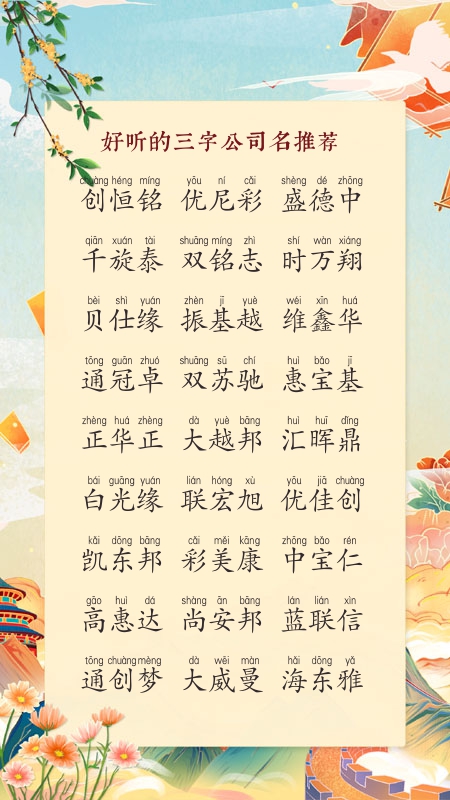 好听的三字公司名推荐
chuàng héng míng yōu ní cǎi shèng dé zhōng
创恒铭 优尼彩 盛德中
qiān xuán tài shuāng míng zhì shí wàn xiáng
千旋泰 双铭志 时万翔
bèi shì yuán zhèn jī yuè wéi xīn huá
贝仕缘 振基越 维鑫华
tōng guān zhuó shuāng sū chí huì bǎo jī
通冠卓 双苏驰 惠宝基
zhèng huá zhèng dà yuè bāng huì huī dǐng
正华正 大越邦 汇晖鼎
bái guāng yuán lián hóng xù yōu jiā chuàng
白光缘 联宏旭 优佳创
kǎi dōng bāng cǎi měi kāng zhōng bǎo rén
凯东邦 彩美康 中宝仁
gāo huì dá shàng ān bāng lán lián xìn
高惠达 尚安邦 蓝联信
tōng chuàng mèng dà wēi màn hǎi dōng yǎ
通创梦 大威曼 海东雅